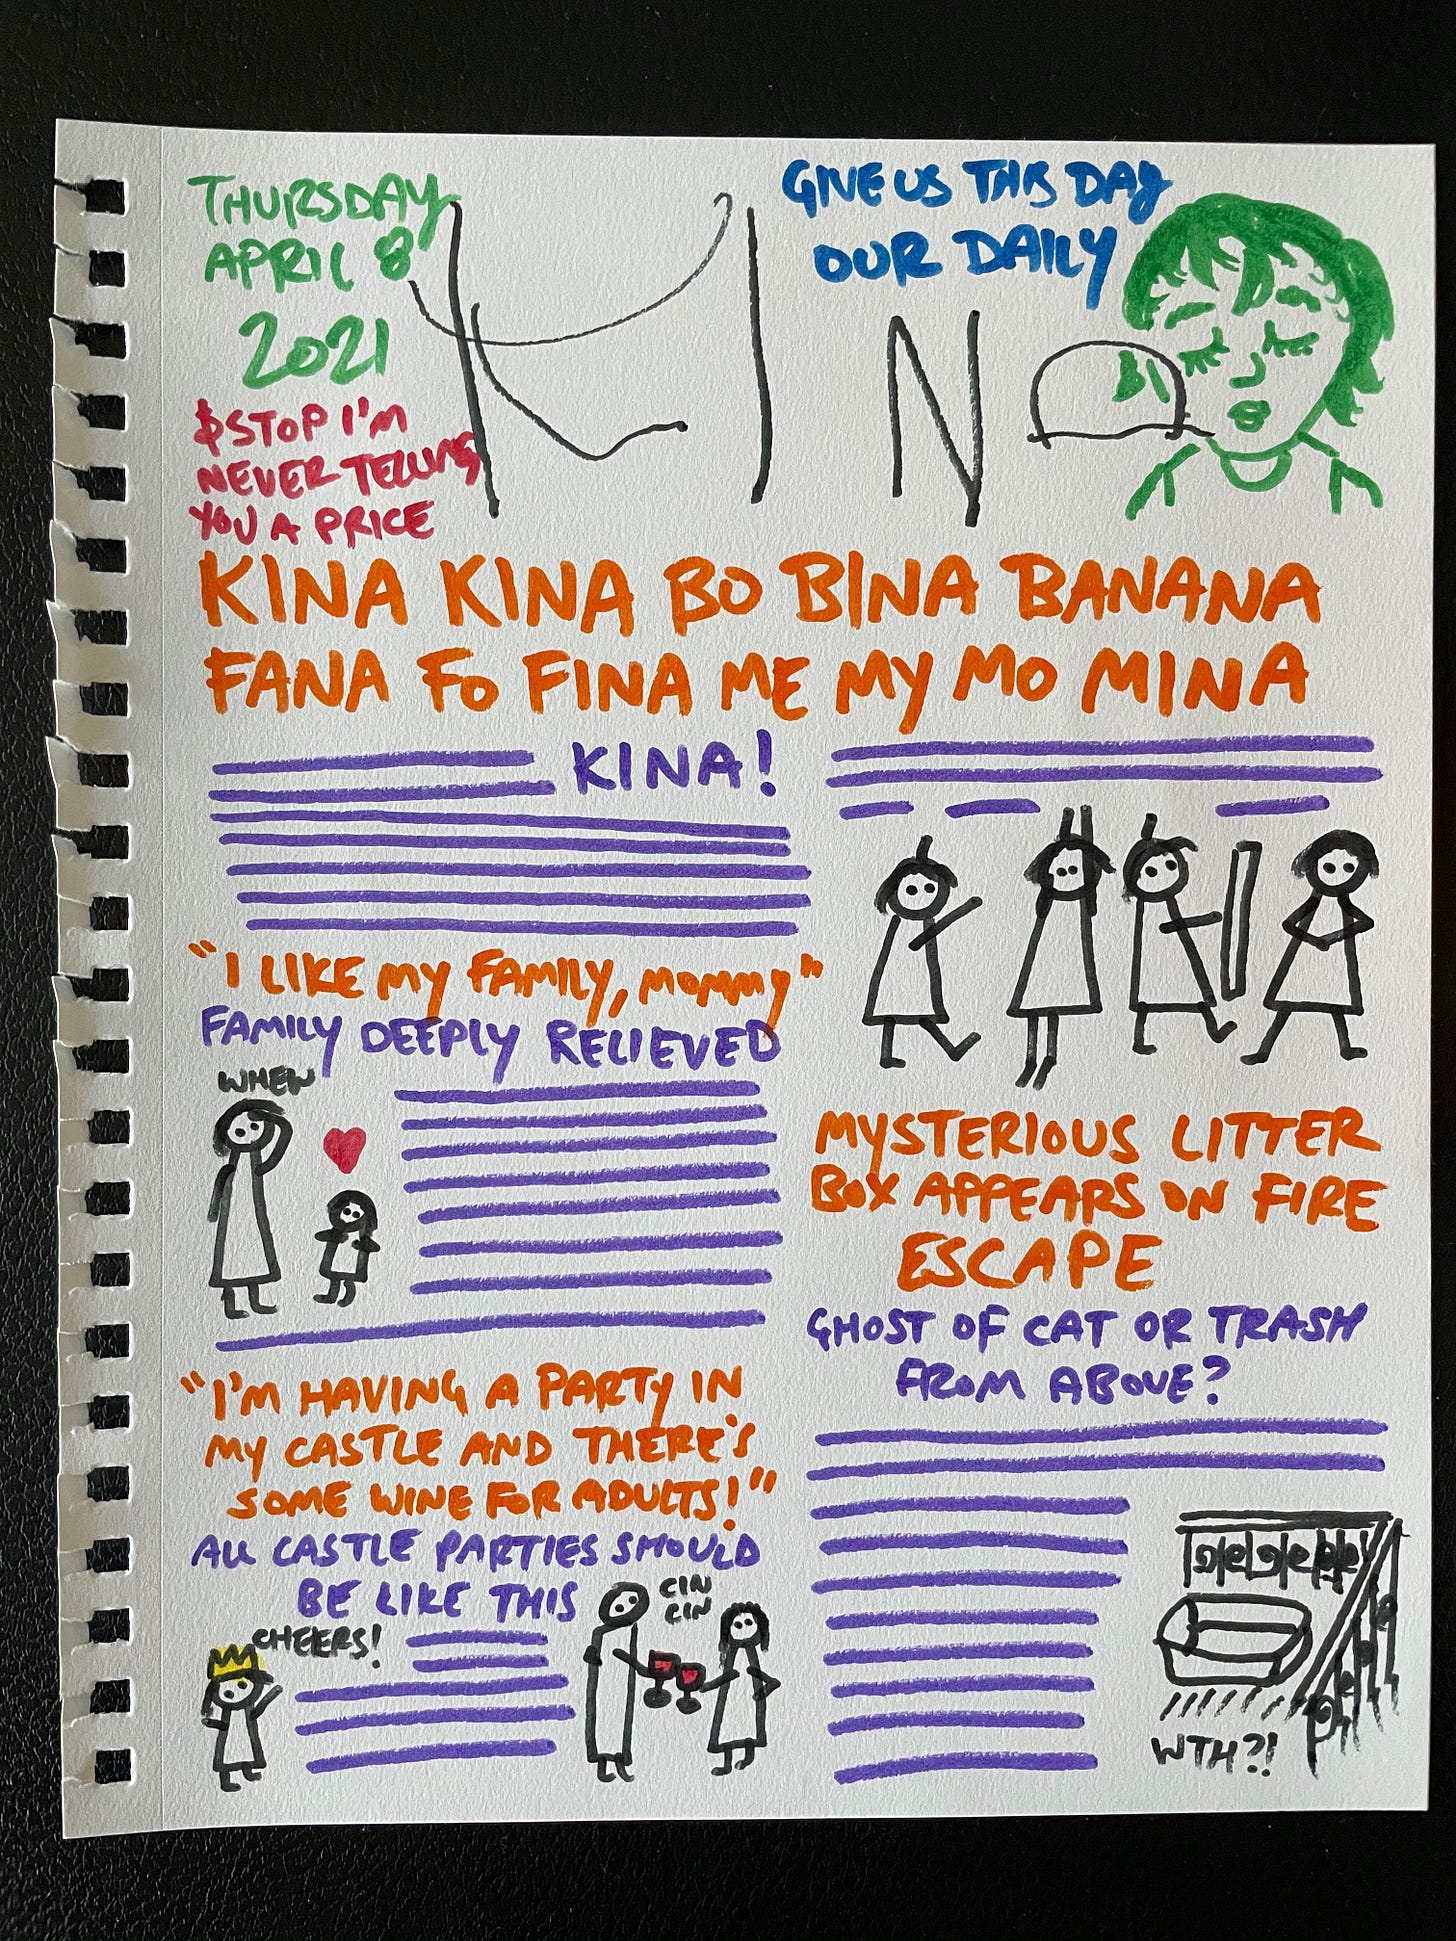 THURSDAY
APRIL 8
2021
$STOP I'M
NEVER TELLING
YOU A PRICE
GIVE US THIS DAY
OUR DAILY
KINA
KINA KINA BO BINA BANANA
FANA FO FINA ME MY MO MINA
KINA!
"I LIKE MY FAMILY, MOMMY"
FAMILY DEEPLY RELIEVED
WHEW
"I'M HAVING A PARTY IN
MY CASTLE AND THERE'S
SOME WINE FOR ADULTS!"
ALL CASTLE PARTIES SHOULD
BE LIKE THIS
CHEERS!
CIN
CIN
MYSTERIOUS LITTER
BOX APPEARS ON FIRE
ESCAPE
GHOST OF CAT OR TRASH
FROM ABOVE?
WTH?!